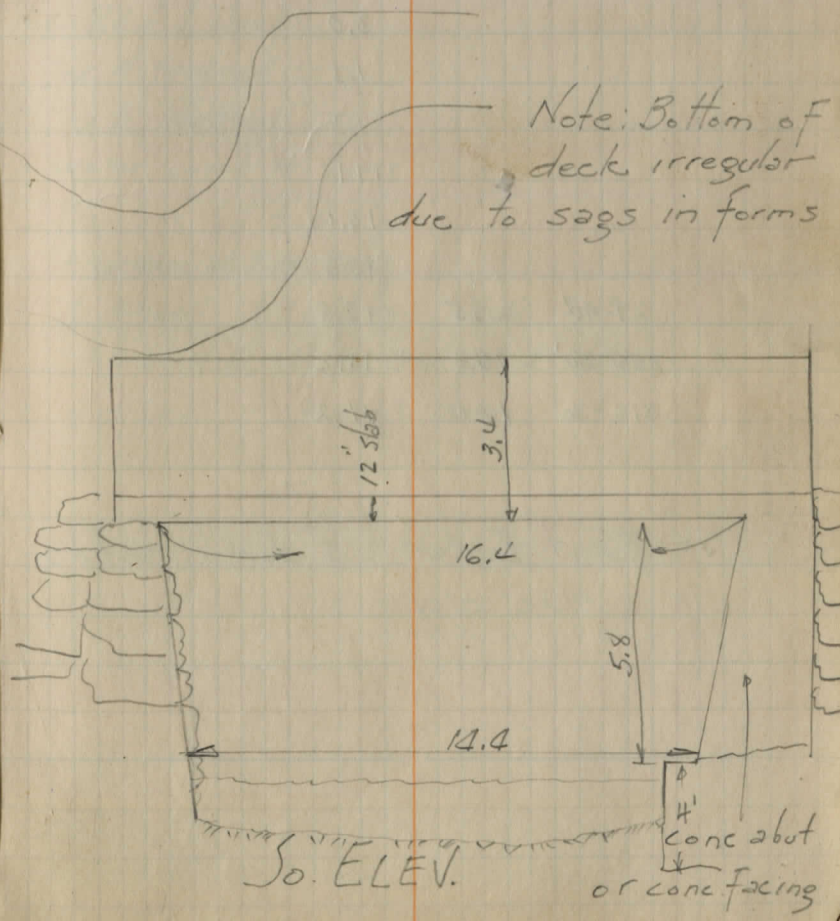 Note: Bottom of
deck irregular
due to sags in forms
12" slab
3.4
16.4
5.8
14.4
4'
conc abut
or conc facing
So. ELEV.